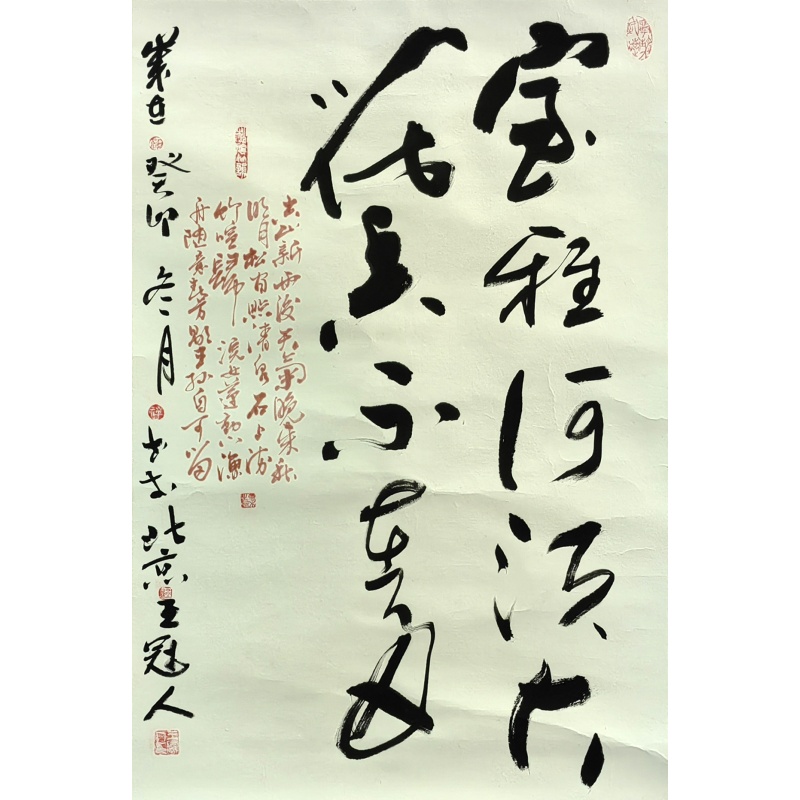 室雅何須大
花香不在多
空山新雨後天氣晚来秋
明月松間照清泉石上流
竹喧歸浣女蓮動下漁
舟随意春芳歇王孫自可留
歲在癸卯冬月书于北京王冠人